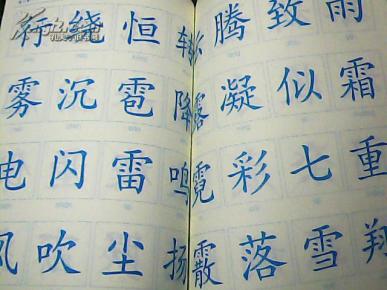 行绕恒转
雾沉雹降
电闪雷鸣
风吹尘扬
腾致雨
露凝似霜
霓彩七重
霰落雪翔